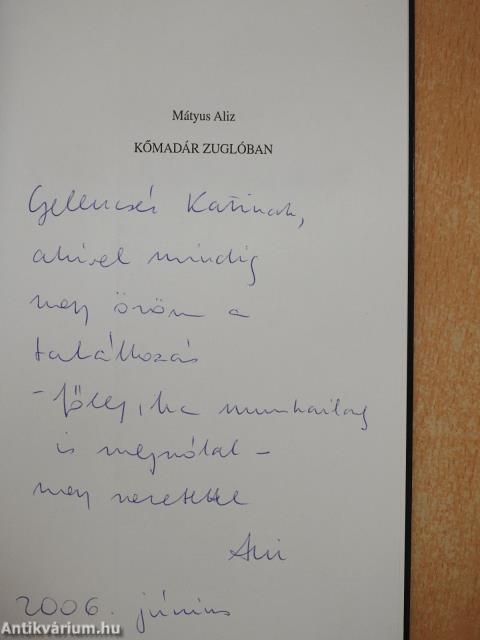 Mátyus Aliz
KŐMADÁR ZUGLÓBAN
Gelencsér Katinak,
akivel mindig
nagy öröm a
találkozás
- főleg, ha munkailag
is
nagy szeretettel
2006. június
Antikvárium.hu